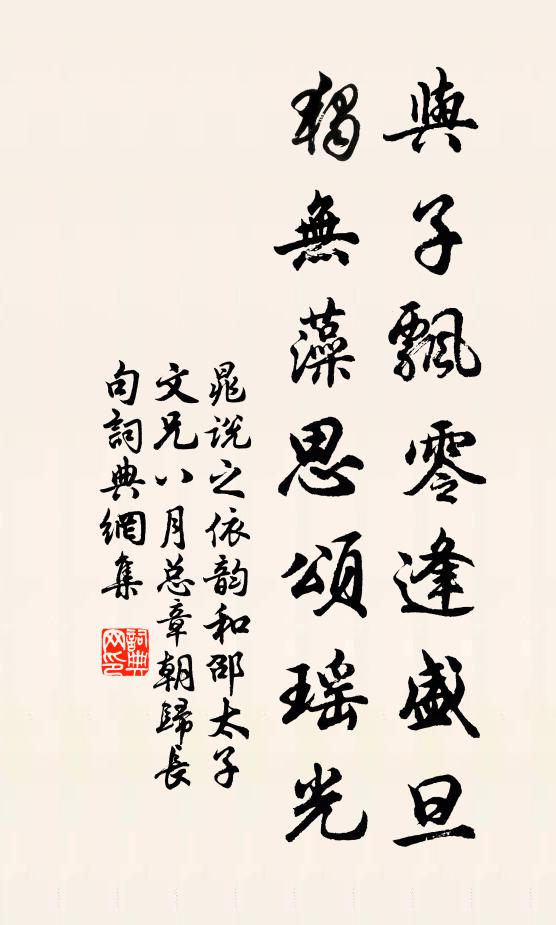 與子飄零逢盛旦
獨無藻思頌瑶光
晁説之依韵和邵太子
文兄八月总章朝歸長
句詞典網集
詞典网印